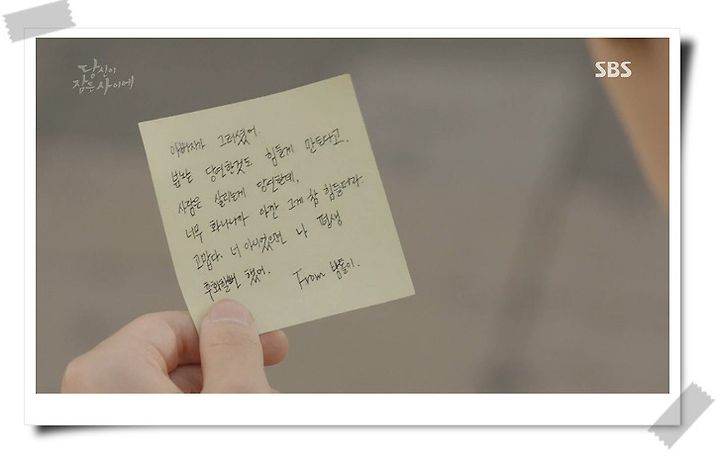 당신이
잠든 사이에
SBS
아빠가 그러셨어.
분노는 당연한것도 힘들게 만든다고.
사람은 살리는게 당연한데,
너무 화나니까 아깐 그게 참 힘들더라.
고맙다. 너 아니었으면 나 평생
후회할뻔 했어. From 밤톨이.